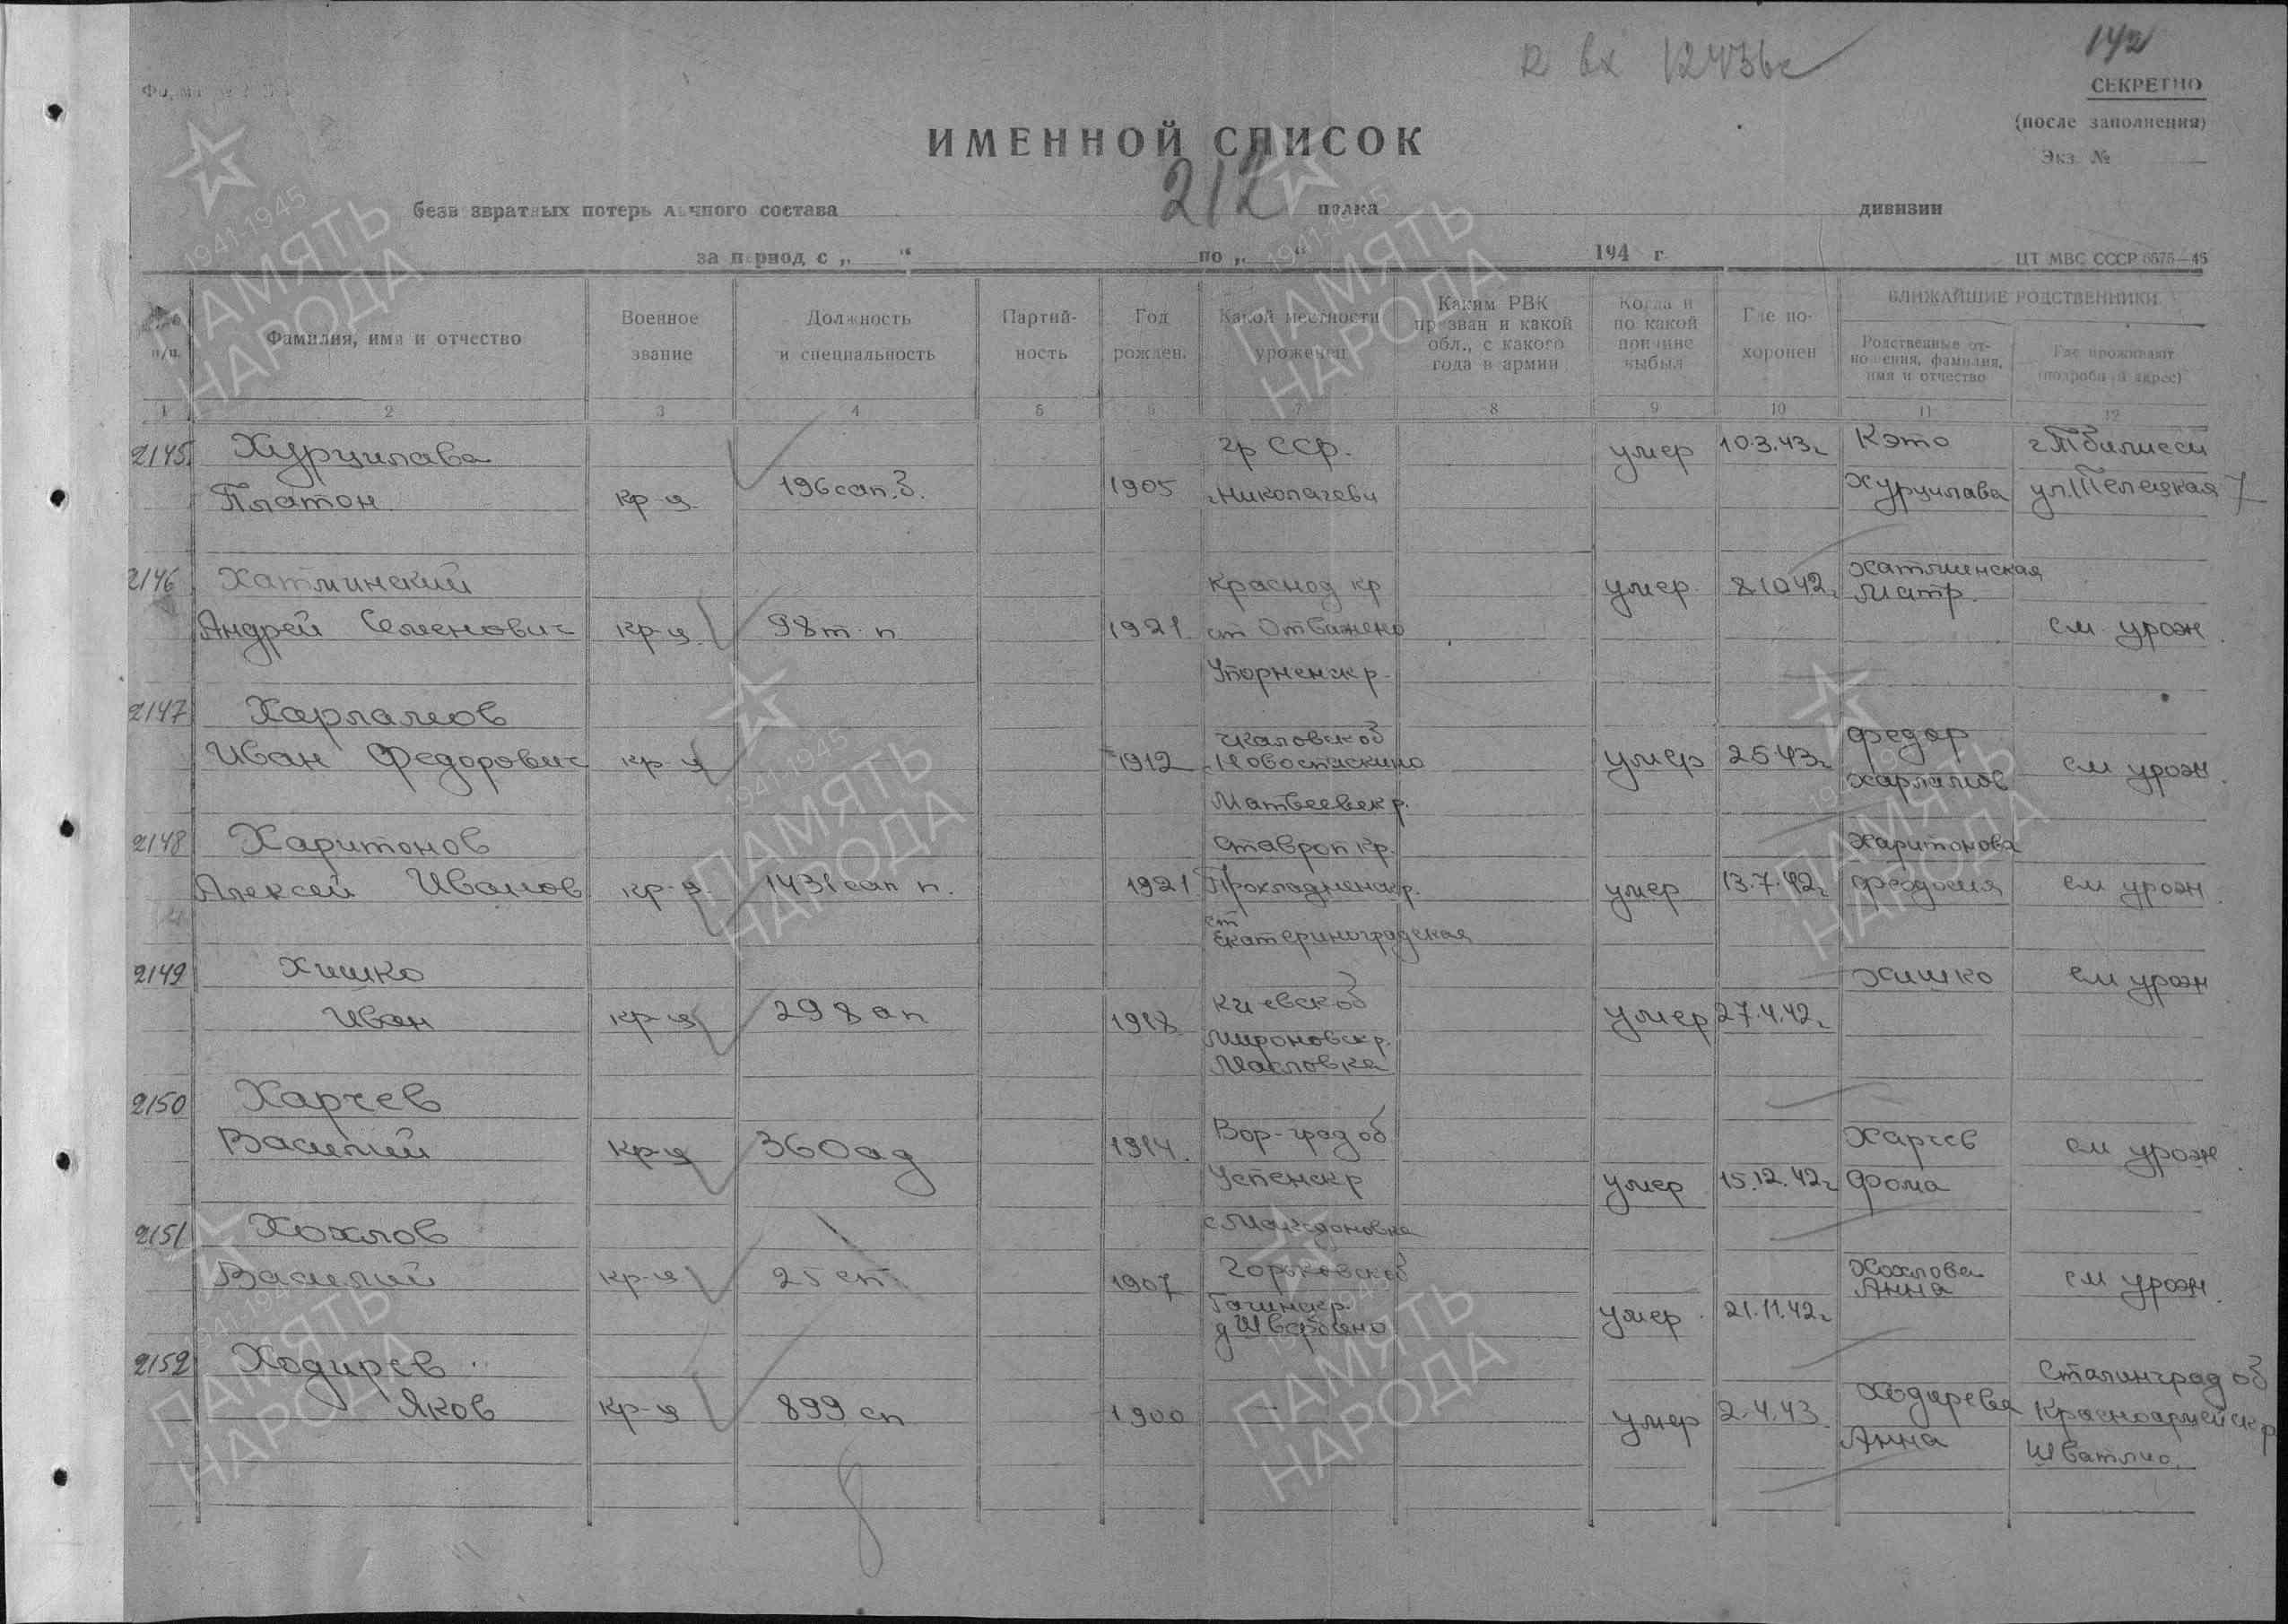 142
к вх 12436с
СЕКРЕТНО
(после заполнения)
Экз. №
ИМЕННОЙ СПИСОК
212
безвозвратных потерь личного состава полка дивизии
за период с „ “ по „ “ 194 г.
ЦТ МВС СССР 6575—45
№ п/п.
Фамилия, имя и отчество
Военное звание
Должность и специальность
Партийность
Год рожден.
Какой местности уроженец
Каким РВК призван и какой обл., с какого года в армии
Когда и по какой причине выбыл
Где похоронен
БЛИЖАЙШИЕ РОДСТВЕННИКИ
Родственные отношения, фамилия, имя и отчество
Где проживают (подробный адрес)
1 2 3 4 5 6 7 8 9 10 11 12
2145 Хурцилава гр ССР. умер 10.3.43г Кэто г Тбилисси
Платон кр-ц 196 сап. б. 1905 Хурцилава ул. 7
2146 Хатминский Краснод кр умер 8 10 42г Хатминская Матр.
Андрей Семенович кр-ц 98 т. п 1921 ст Отважено см. урож.
Упорненск р
2147 Харламов Чкаловск об Федор
Иван Федорович кр-ц 1912 Новоспаскино умер 2 5 43г Харламов см урож.
Матвеевск р.
2148 Харитонов Ставроп кр. Харитонова
Алексей Иванов кр-ц 1431 сап п. 1921 Прохладненск р. умер 13.7.42г Феодосия см урож.
ст Екатериноградская
2149 Хишко Хишко см урож
Иван кр-ц 298 ап 1918 Киевск об умер 27.4.42г
Мироновск р.
Масловка
2150 Харчев Вор-град об
Василий кр-ц 360 ад 1914. Харчев см урож.
Успенск р умер 15.12.42г Фома
2151 Хохлов с Македоновка
Василий кр-ц 25 сп 1907 Горьковск об Хохлова Анна см урож.
умер 21.11.42г
2152 Ходирев Сталинград об
Яков кр-ц 899 сп 1900 — умер 2.4.43 Ходарева Красноармейск р
Анна
ПАМЯТЬ НАРОДА
1941-1945
ПАМЯТЬ НАРОДА
1941-1945
ПАМЯТЬ НАРОДА
1941-1945
ПАМЯТЬ НАРОДА
1941-1945
ПАМЯТЬ НАРОДА
1941-1945
ПАМЯТЬ НАРОДА
1941-1945